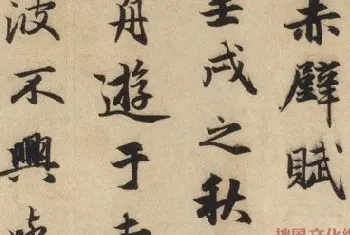 赤壁賦
壬戌之秋
舟遊于
波不興